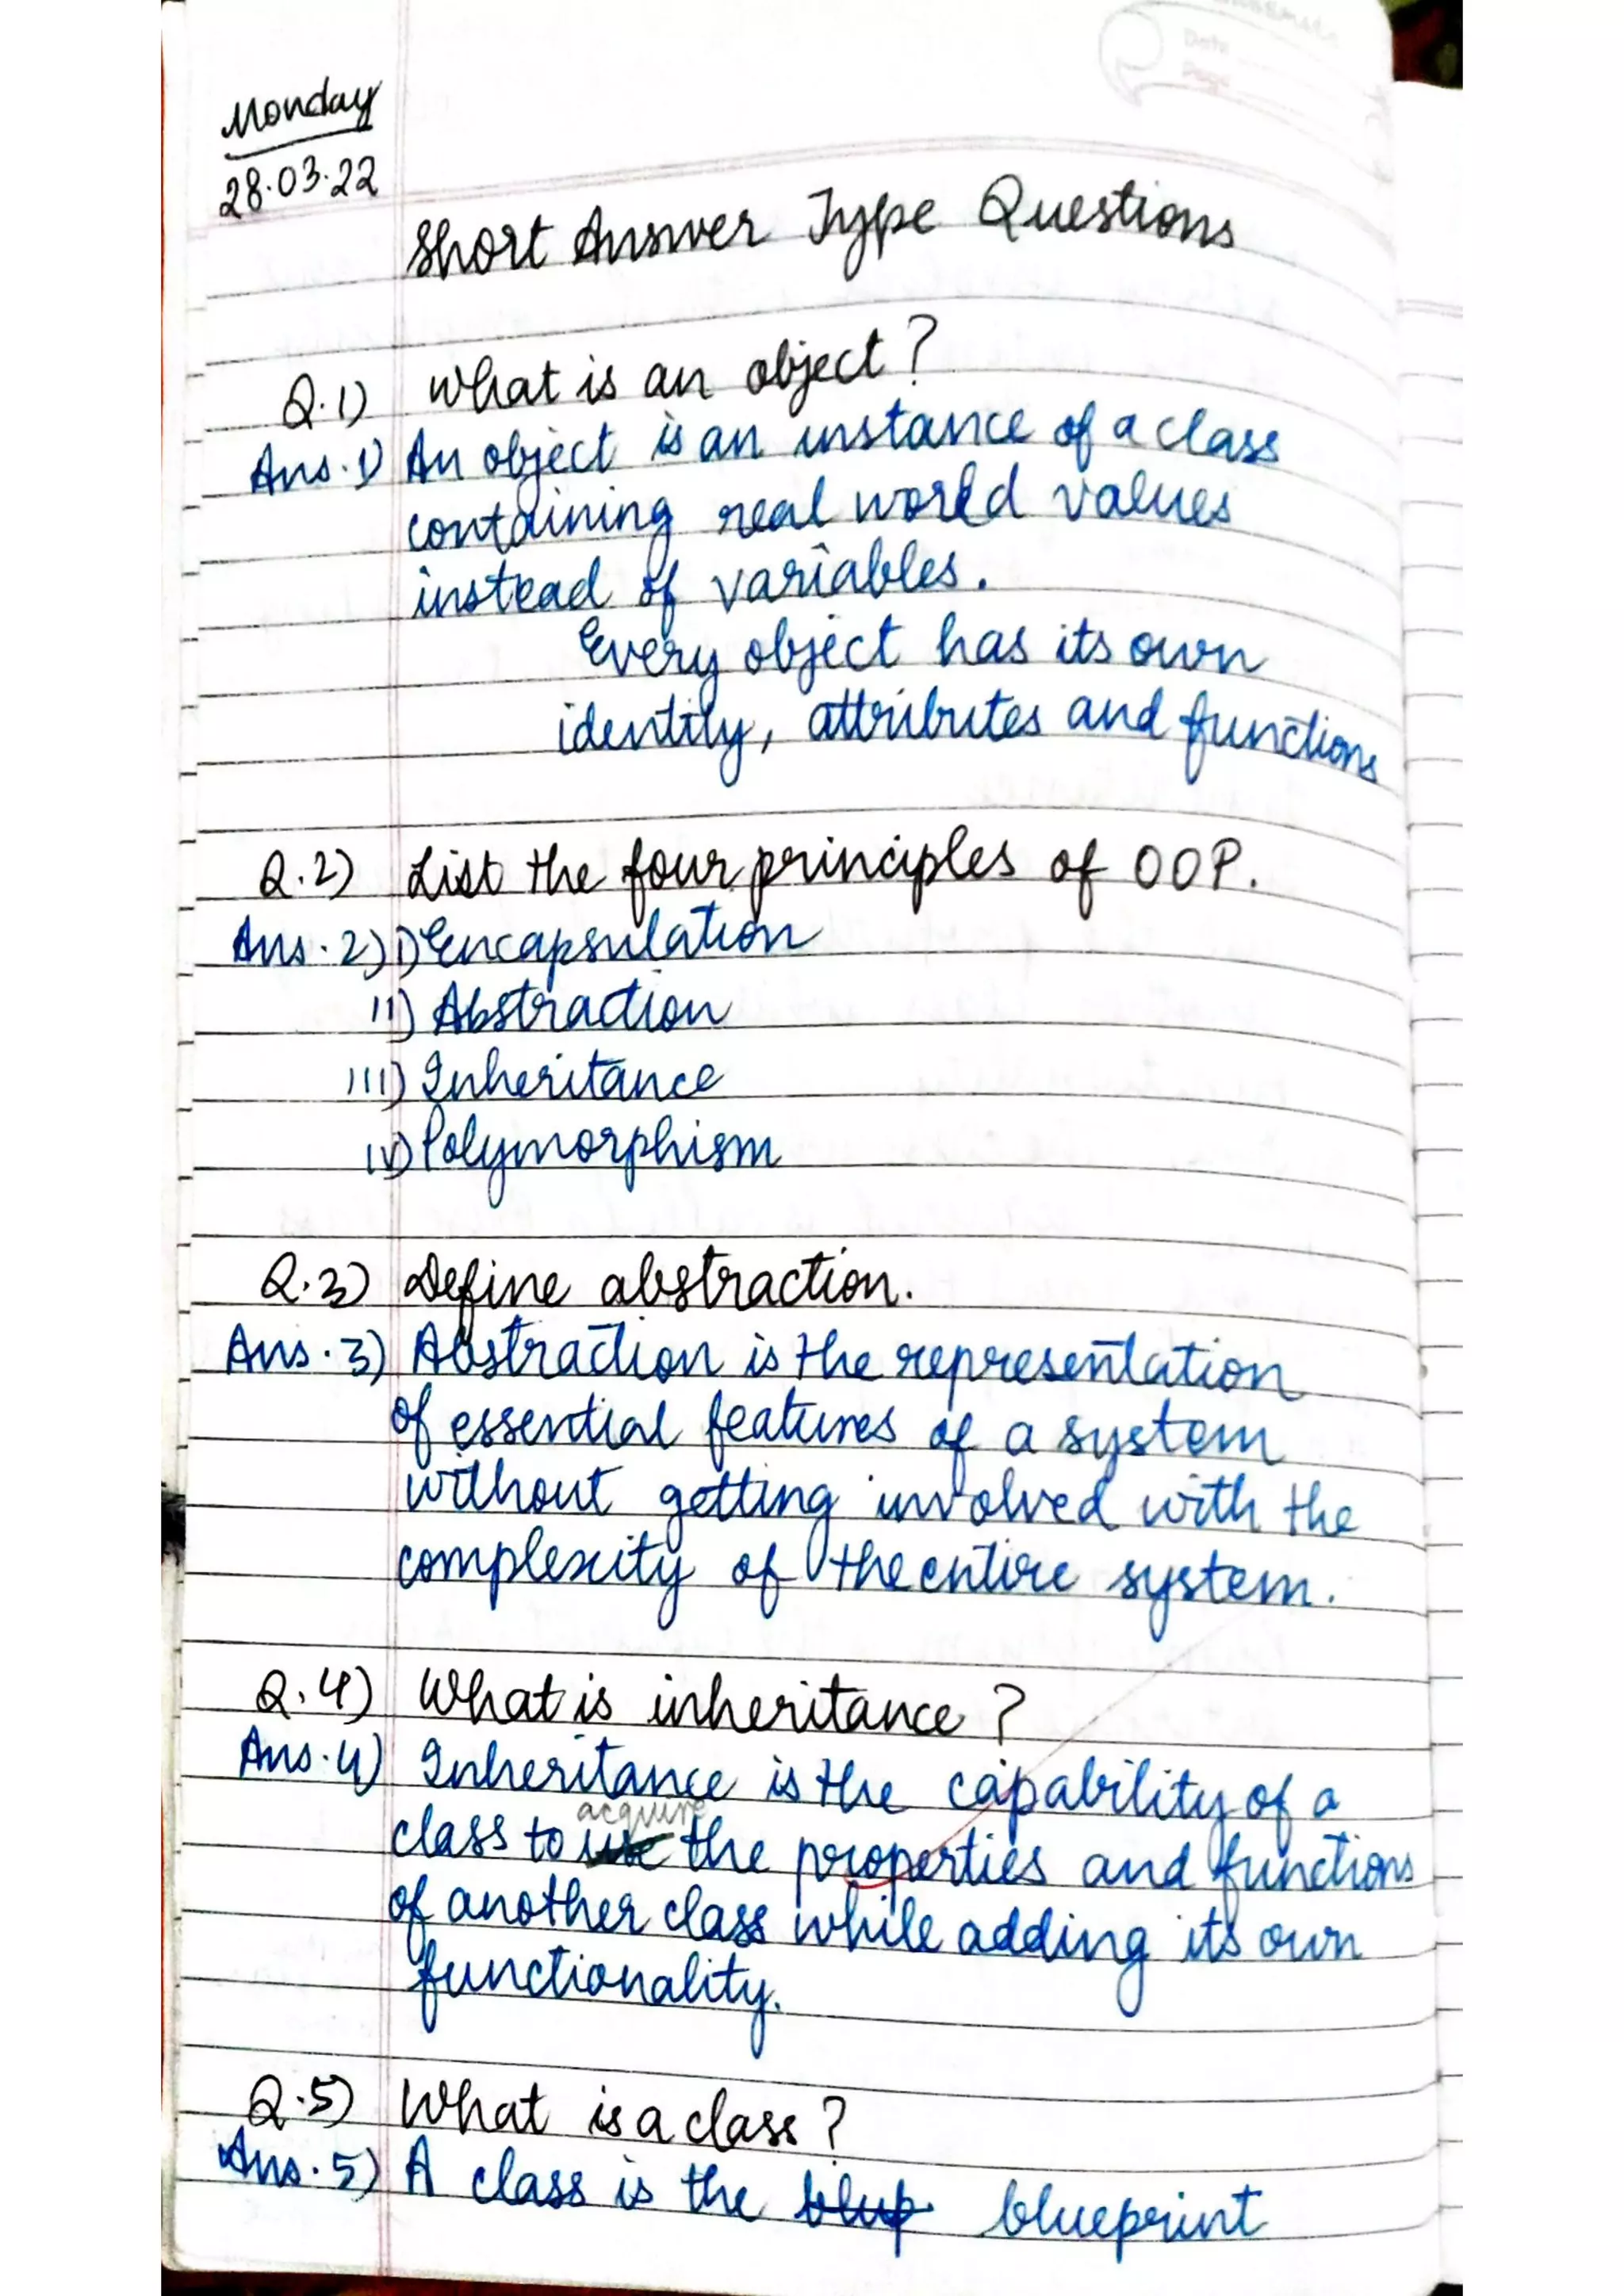 classmate
Date
Page
Monday
28.03.22
Short Answer Type Questions
Q.1) What is an object?
Ans.1) An object is an instance of a class
containing real world values
instead of variables.
Every object has its own
identity, attributes and functions
Q.2) List the four principles of OOP.
Ans.2) i) Encapsulation
ii) Abstraction
iii) Inheritance
iv) Polymorphism
Q.3) Define abstraction.
Ans.3) Abstraction is the representation
of essential features of a system
without getting involved with the
complexity of the entire system.
Q.4) What is inheritance?
Ans.4) Inheritance is the capability of a
acquire
class to use the properties and functions
of another class while adding its own
functionality.
Q.5) What is a class?
Ans.5) A class is the blup blueprint